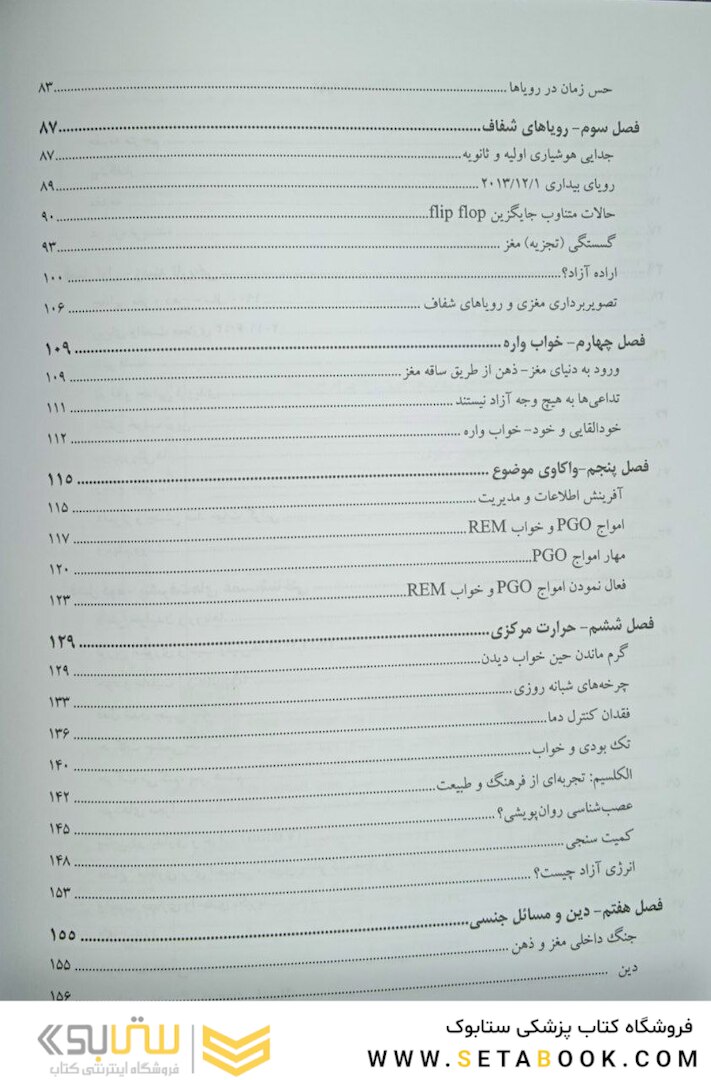 حس زمان در رویاها ........ ۸۳
فصل سوم- رویاهای شفاف ........ ۸۷
جدایی هوشیاری اولیه و ثانویه ........ ۸۷
رویای بیداری ۲۰۱۳/۱۲/۱ ........ ۸۹
حالات متناوب جایگزین flip flop ........ ۹۰
گسستگی (تجزیه) مغز ........ ۹۳
اراده آزاد؟ ........ ۱۰۰
تصویربرداری مغزی و رویاهای شفاف ........ ۱۰۶
فصل چهارم- خواب واره ........ ۱۰۹
ورود به دنیای مغز- ذهن از طریق ساقه مغز ........ ۱۰۹
تداعی‌ها به هیچ وجه آزاد نیستند ........ ۱۱۱
خودالقایی و خود- خواب واره ........ ۱۱۲
فصل پنجم-واکاوی موضوع ........ ۱۱۵
آفرینش اطلاعات و مدیریت ........ ۱۱۵
امواج PGO و خواب REM ........ ۱۱۷
مهار امواج PGO ........ ۱۲۰
فعال نمودن امواج PGO و خواب REM ........ ۱۲۳
فصل ششم- حرارت مرکزی ........ ۱۲۹
گرم ماندن حین خواب دیدن ........ ۱۲۹
چرخه‌های شبانه روزی ........ ۱۳۳
فقدان کنترل دما ........ ۱۳۶
تک بودی و خواب ........ ۱۴۰
الکلسیم: تجربه‌ای از فرهنگ و طبیعت ........ ۱۴۲
عصب‌شناسی روان‌پویشی؟ ........ ۱۴۵
کمیت سنجی ........ ۱۴۸
انرژی آزاد چیست؟ ........ ۱۵۳
فصل هفتم- دین و مسائل جنسی ........ ۱۵۵
جنگ داخلی مغز و ذهن ........ ۱۵۵
دین ........ ۱۵۶
فروشگاه کتاب پزشکی ستابوک
WWW.SETABOOK.COM
ستابوک
فروشگاه اینترنتی کتاب